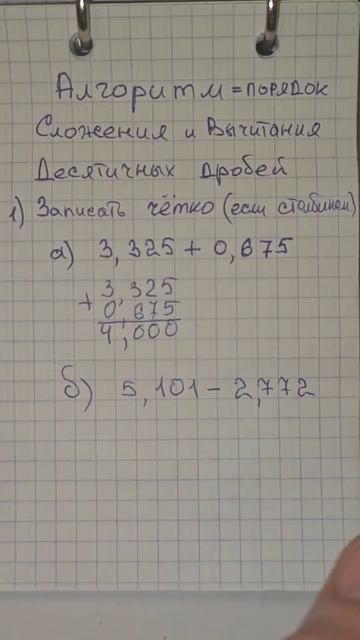 Алгоритм = порядок
Сложения и Вычитания
Десятичных Дробей
1) Записать чётко (если столбиком)
а) 3,325 + 0,675
3,325
+
0,675
4,000
б) 5,101 - 2,772